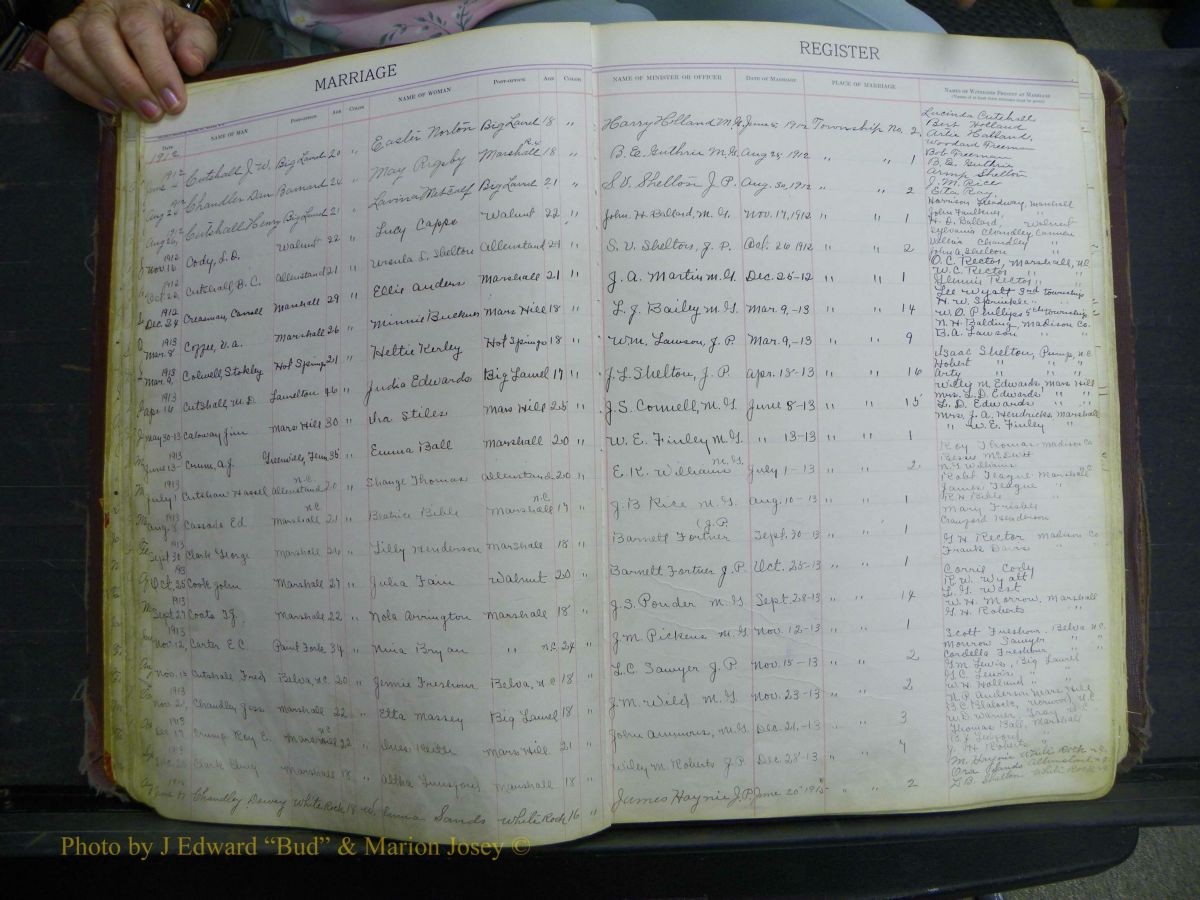 MARRIAGE
REGISTER
Date NAME OF MAN Post-office Age Color NAME OF WOMAN Post-office Age Color NAME OF MINISTER OR OFFICER DATE OF MARRIAGE PLACE OF MARRIAGE NAMES OF WITNESSES PRESENT AT MARRIAGE
1912
Cutshall J. W. Big Laurel 20 " Easter Norton Big Laurel 18 " Harry Holland M.G. June 5, 1912 Township No. 2 Lucinda Cutshall
Bert Holland
Artie Hollands
1912 Chandler Dan Barnard 24 " May Rigsby Marshall 18 " B.E. Guthrie M.G. Aug 25, 1912 " " 1 Woodard Freeman
Bob Freeman
B.E. Guthrie
1912 Aug 26, Cutshall Henry Big Laurel 21 " Lavina Metcalf Big Laurel 21 " S.V. Shelton J.P. Aug. 30, 1912 " " 2 Armp Shelton
J.M. Rice
Etta Ray
1912 Nov. 16 Cody, L.D. Walnut 22 " Lucy Capps Walnut 22 " John H. Ballard, M.G. Nov. 17, 1912 " " 1 Harrison Treadway, Marshall
John Faulkner, "
H.D. Ballard, Walnut
1912 Oct. 22 Cutshall, B.C. Allenstand 21 " Ursula S. Shelton Allenstand 21 " S.V. Shelton, J.P. Oct. 26 1912 " " 2 Sylvania Chandley,
Villia Chandley "
John A. Shelton "
1912 Dec. 24 Creasman, Carroll Marshall 29 " Ellie Anders Marshall 21 " J.A. Martin M.G. Dec. 25-12 " " 1 O.C. Rector, Marshall, N.C.
W.C. Rector "
Glennis Rector "
1913 Mar. 8 Cozzee, V.A. Marshall 26 " Minnie Buckner Mars Hill 18 " L.J. Bailey M.G. Mar. 9,-13 " " 14 Lee Wyatt 3rd township
H.W. Sprinkle "
W.O. Phillips 5th township
1913 Mar 9, Colwell, Stokley Hot Springs 21 " Hettie Kerley Hot Springs 18 " Wm. Lawson, J.P. Mar. 9,-13 " " 9 N.H. Balding, Madison Co.
B.A. Lawson " "
1913 Apr. 16 Cutshall, M.D. Laurelton 46 " Judia Edwards Big Laurel 17 " J.L. Shelton, J.P. Apr. 18-13 " " 16 Isaac Shelton, Pump, N.C.
Hobert " " "
Arty " " "
May 30-13 Caloway Jim Mars Hill 30 " Ira Stiles Mars Hill 25 " J.S. Connell, M.G. June 8-13 " " 15 Willy M. Edwards, Mars Hill
Mrs. L.D. Edwards " "
L.D. Edwards " "
1913 June 13- Crum, A.J. Greenville, Tenn 35 " Emma Ball Marshall 20 " W.E. Finley M.G. " 13-13 " " 1 Mrs. J.A. Hendricks, Marshall
" W.E. Finley "
1913 July 1 Cutshaw Hassel Allenstand N.C. 20 " Shange Thomas Allenstand 20 " E.K. Williams M.G. July 1-13 " " 2 Roy Thomas Madison Co
Bessie McDevitt
N.G. Williams
1913 Aug. 8 Cassada Ed Marshall N.C. 21 " Beatrice Bible Marshall N.C. 17 " J.B. Rice M.G. Aug. 10-13 " " 1 Robt Teague Marshall N.C.
James Teague "
R.H. Bible "
1913 Sept 30 Clark George Marshall 26 " Lilly Henderson Marshall 18 " Barnett Fortner (J.P. Sept. 30 13 " " 1 Mary Frisbee
Crawford Henderson
Oct. 25 Cook John Marshall 27 " Julia Fain Walnut 20 " Barnett Fortner J.P. Oct. 25-13 " " 1 G.H. Rector Madison Co
Frank Davis " "
1913 Sept. 27 Coats T.J. Marshall 22 " Nola Arrington Marshall 18 " J.S. Ponder M.G. Sept. 28-13 " " 14 Corrie Cody
R.W. Wyatt
L.G. West
1913 Nov. 12, Carter E.C. Paint Fork 34 " Nina Bryan " N.C. 24 " J.M. Pickens M.G. Nov. 12-13 " " 1 W.H. Morrow, Marshall
G.H. Roberts " "
Nov. 15 Cutshall Fred Belva, N.C. 20 " Jennie Freshour Belva, N.C. 18 " L.C. Sawyer J.P. Nov. 15-13 " " 2 Scott Freshour, Belva N.C.
Monroe Sawyer " "
Cordella Freshour " "
1913 Nov. 21, Chandley Jess Marshall 22 " Etta Massey Big Laurel 18 " J.M. Wild M.G. Nov. 23-13 " " 2 G.M. Lewis, Big Laurel
G.C. Lewis "
W.H. Holland " "
1913 Dec 17 Crump Roy E. Marshall N.C. 22 " Mars Hill 21 " John Ammons, M.G. Dec. 21,-13 " " 3 N.P. Anderson Mars Hill
W.D. Warner,
1913 Dec. 25 Clark Marshall 18 " Altha Lunsford Marshall 18 " Wiley M. Roberts J.P. Dec. 25-13 " " 4 Thomas Ball, Marshall
J.H. Roberts "
June 17 Chandley Dewey White Rock 18 W. Emma Sands White Rock 16 " James Haynie J.P. June 20 1915 " " 2 M. Haynie White Rock N.C.
Ora Shands Allenstand N.C.
Z.B. Shelton White Rock N.C.
Photo by J Edward “Bud” & Marion Josey ©